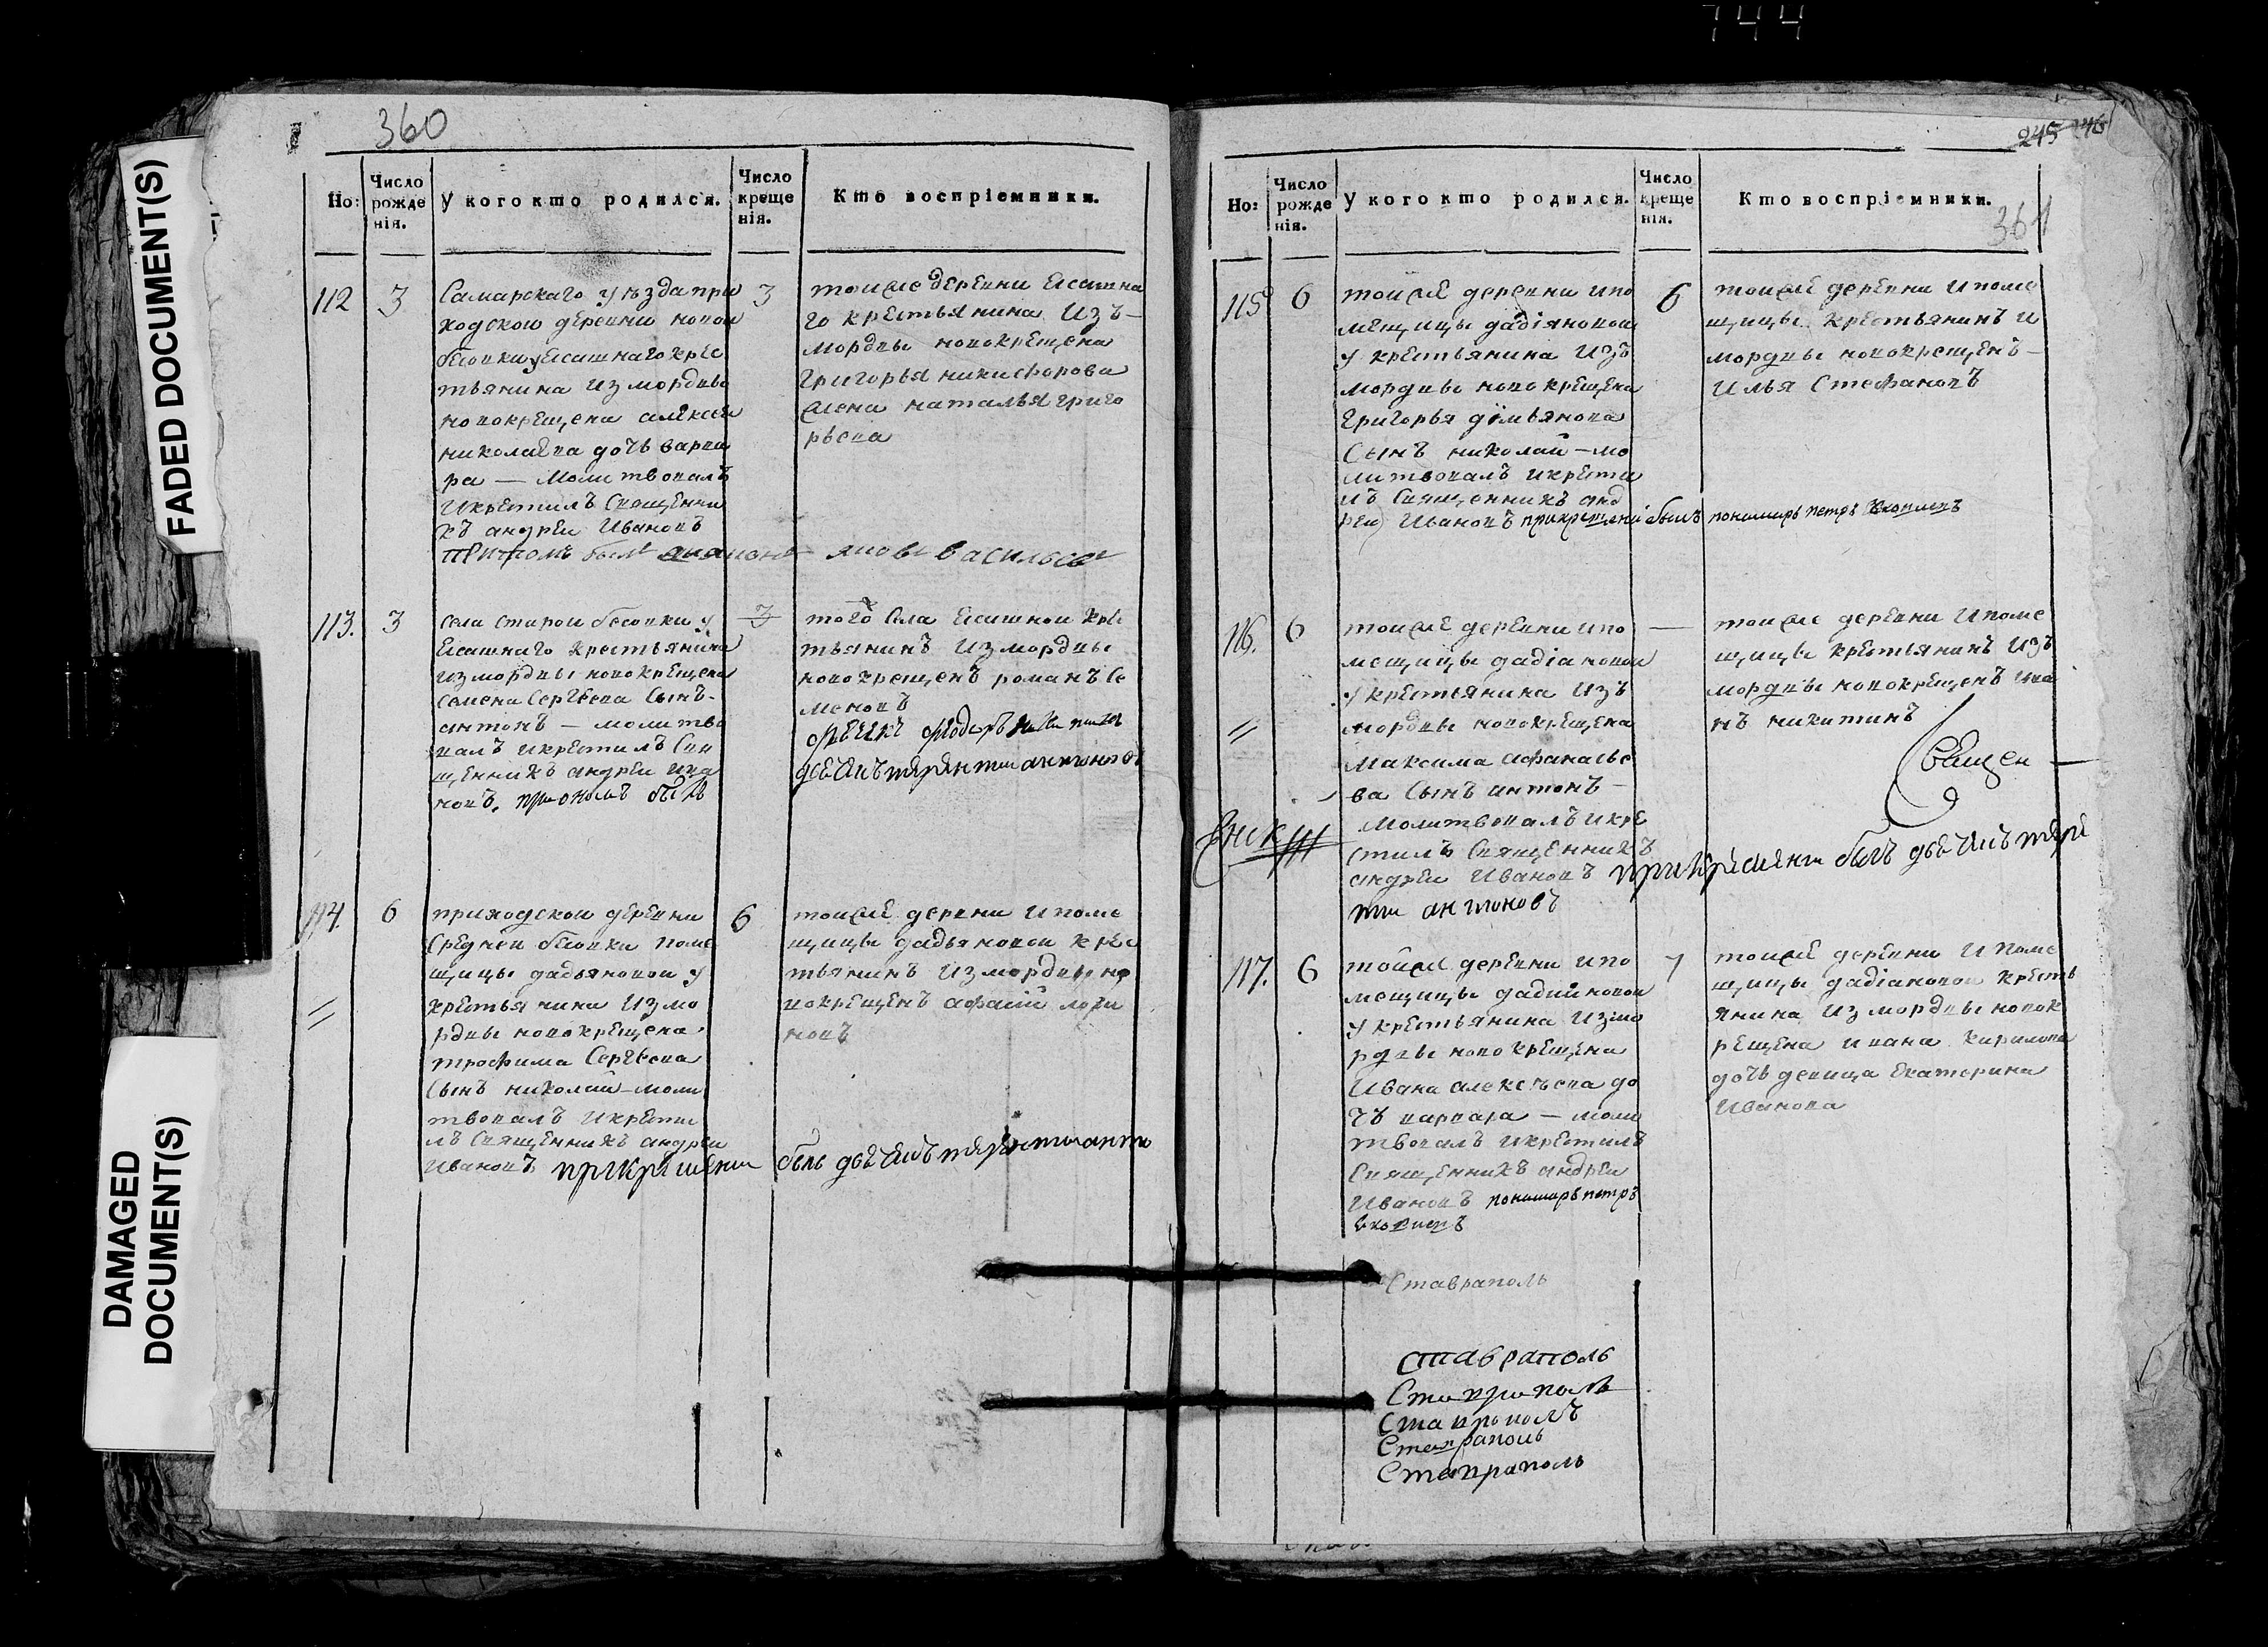 744
FADED DOCUMENT(S)
DAMAGED
DOCUMENT(S)
360
Но:
Число
рожде
нія.
У кого кто родился.
Число
креще
нія.
Кто воспріемники.
112
3
Самарскаго уѣзда при
ходской деревни новой
бесовки у есашнаго крес
тьянина из мордвы
новокрещена алексея
николаева дочь варва
ра — молитвовалъ
и крестилъ Священни
къ андрей Ивановъ
притомъ былъ диаконъ яковъ васильевъ
3
тойже деревни есашна
го крестьянина Изъ
мордвы новокрещена
григорья никифорова
жена наталья григо
рьева
113.
3
села старой бесовки у
есашнаго крестьянина
из мордвы новокрещена
семена Сергѣева Сынъ
антонъ — молитво
валъ и крестилъ Свя
щенникъ андрей ива
новъ. при ономъ былъ
3
того села есашной кре
стьянинъ из мордвы
новокрещенъ романъ Се
меновъ
дьячекъ терентии антоновъ
114.
6
приходской деревни
Средней бесовки поме
щицы дадьяновой у
крестьянина Измо
рдвы новокрещена
трофима Сергѣева
Сынъ николай — моли
твовалъ и крести
лъ Священникъ андрей
Ивановъ при крещении былъ дьячекъ терентии анто
6
тойже деревни и поме
щицы дадьяновой крес
тьянинъ из мордвы но
вокрещенъ
новъ
245 246
Но:
Число
рожде
нія.
У кого кто родился.
Число
креще
нія.
Кто воспріемники.
361
115
6
тойже деревни и по
мещицы дадіяновой
у крестьянина Изъ
мордвы новокрещена
Григорья димьянова
Сынъ николай — мо
литвовалъ и крести
лъ Священникъ анд
рей Ивановъ при крещении былъ пономарь петръ
6
тойже деревни и поме
щицы крестьянинъ и
мордвы новокрещенъ —
Илья Стефановъ
116.
6
тойже деревни и по
мещицы дадіановой
у крестьянина Изъ
мордвы новокрещена
Максима афанасье
ва Сынъ антонъ —
Молитвовалъ и кре
стилъ Священникъ
андрей Ивановъ при крещении былъ дьячекъ тере
нтии антоновъ
—
тойже деревни и поме
щицы крестьянинъ Изъ
мордвы новокрещенъ ива
нъ никитинъ
Священ —
117.
6
тойже деревни и по
мещицы дадияновой
у крестьянина Измо
рдвы новокрещена
Ивана алексѣева до
чъ варвара — моли
твовалъ и крестилъ
Священникъ андрей
Ивановъ пономарь петръ
7
тойже деревни и поме
щицы дадіановой кресть
янина из мордвы новок
рещена ивана кирилова
дочь девица Екатерина
Иванова
Ставраполь
Ставраполь
Ставраполь
Ставрополъ
Ставраполь
Ставраполь